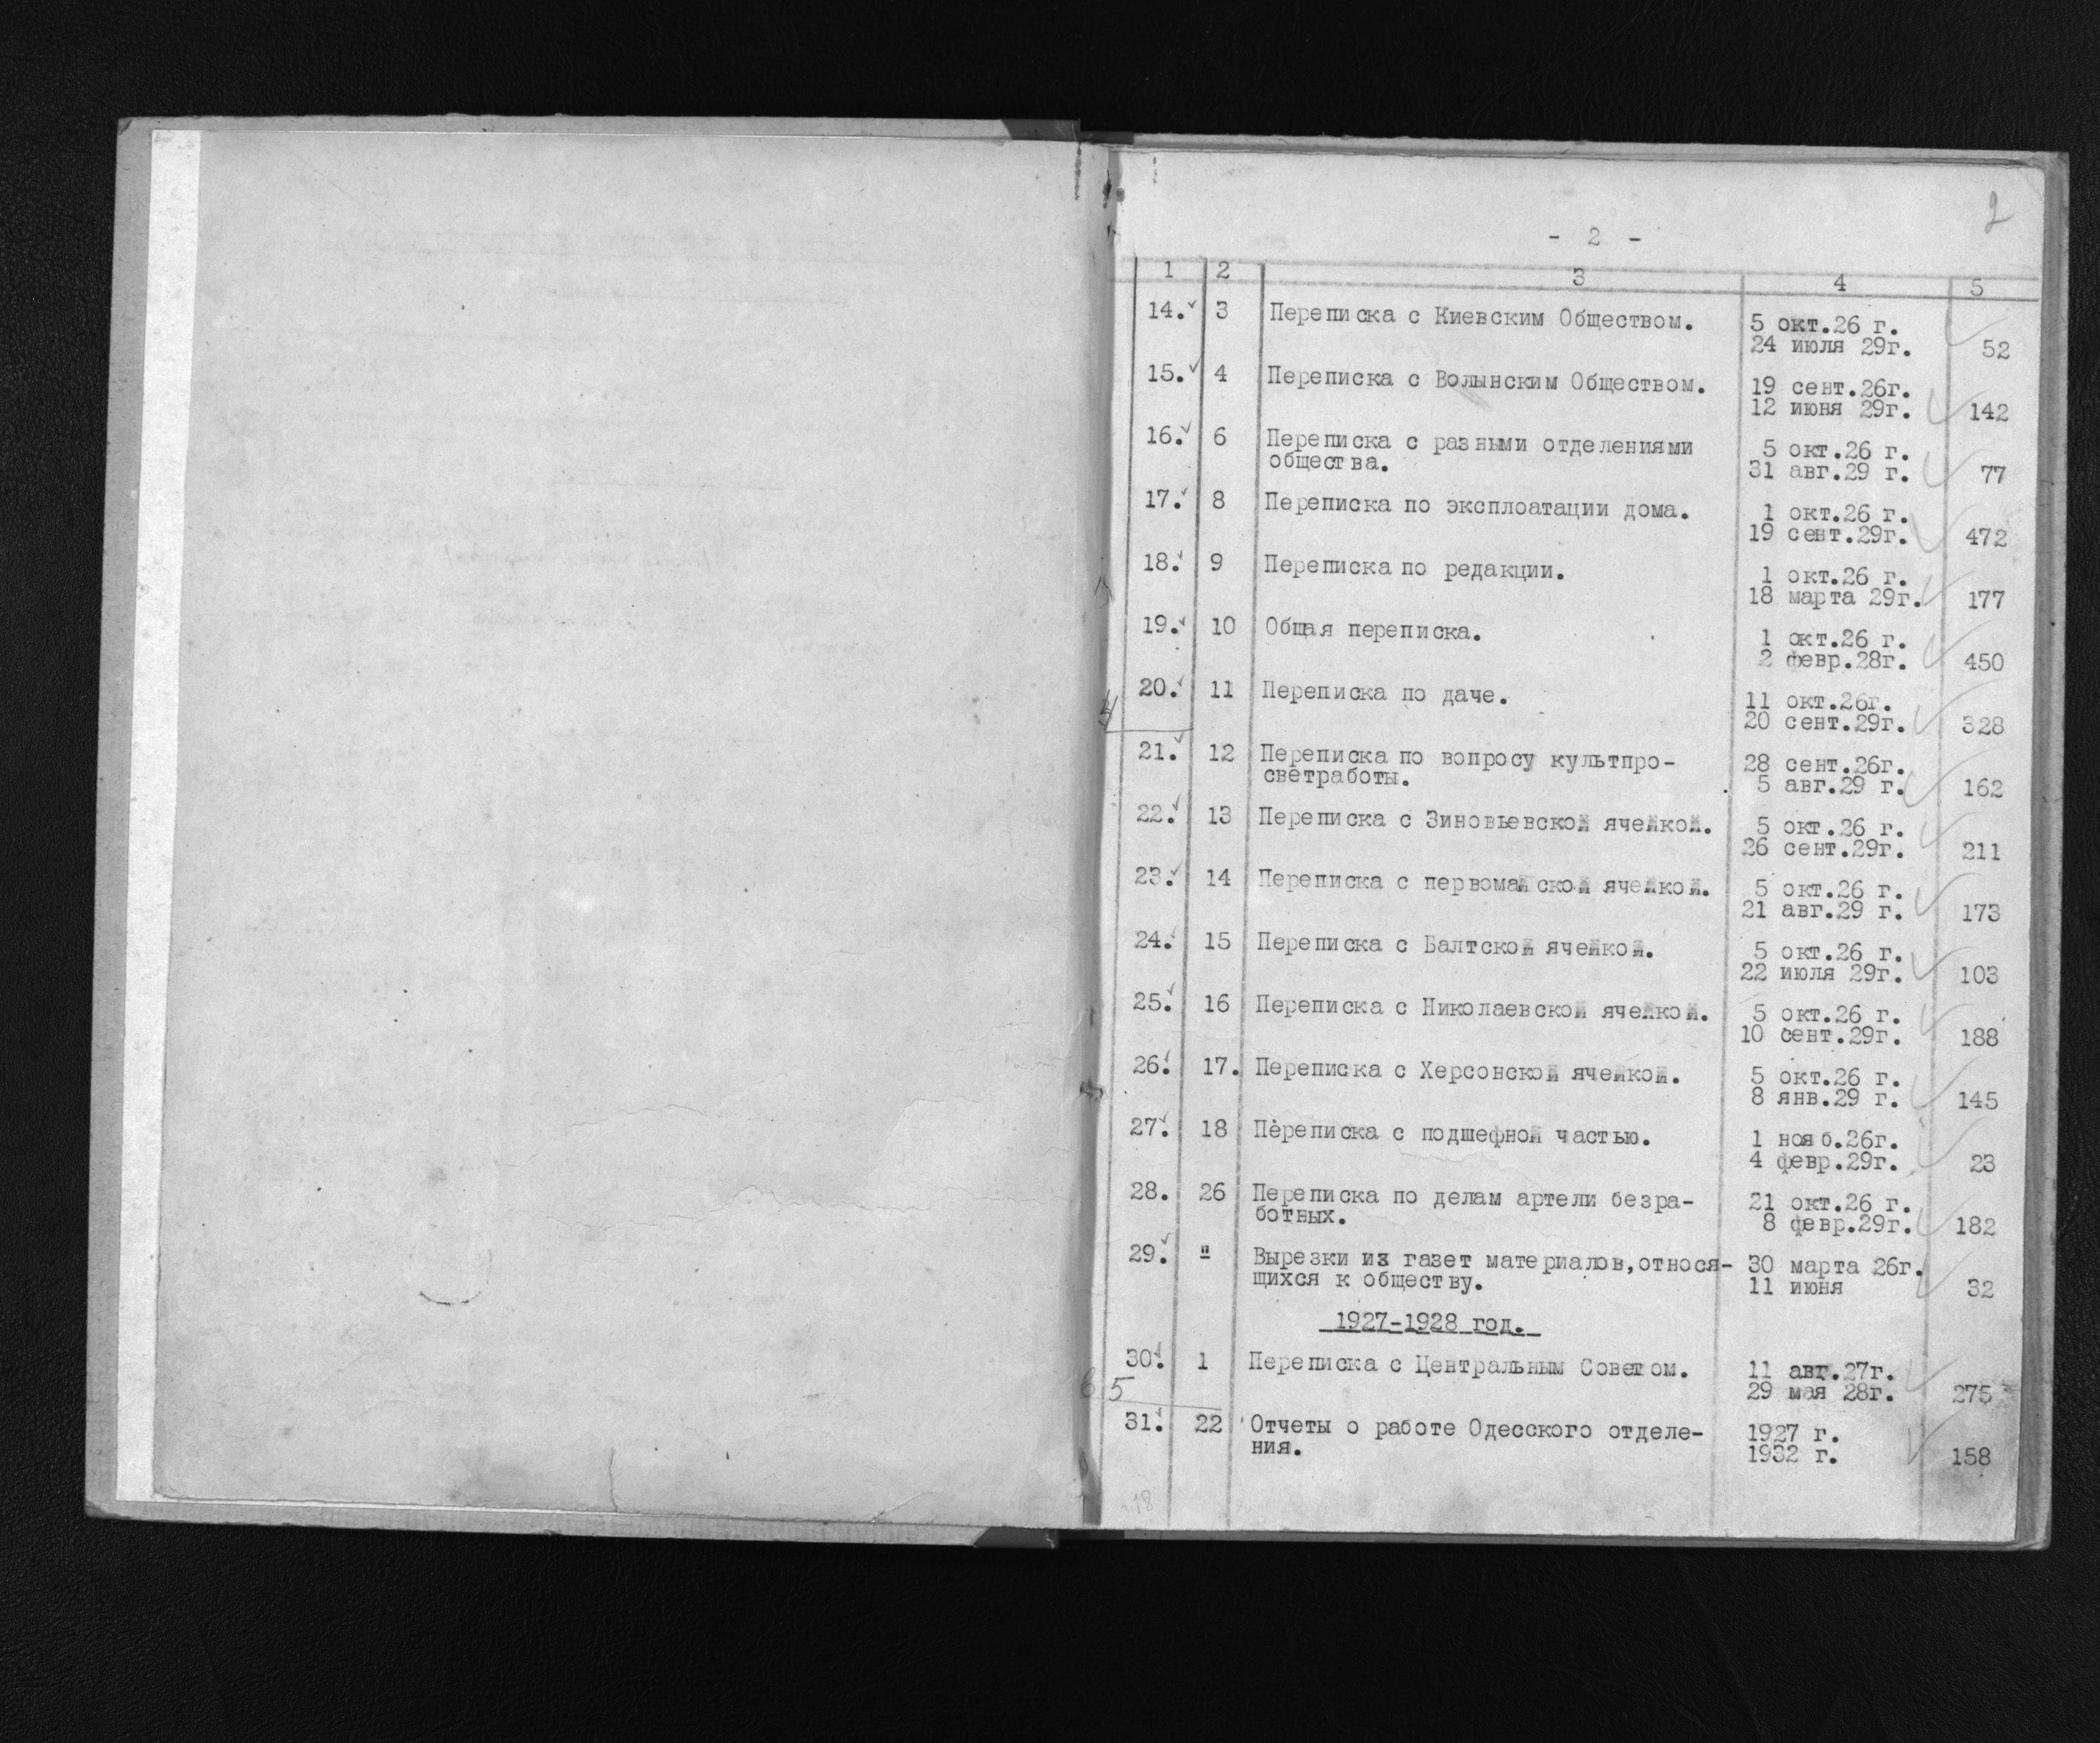 2
- 2 -
1 2 3 4 5
14. 3 Переписка с Киевским Обществом. 5 окт.26 г.
24 июля 29г. 52
15. 4 Переписка с Волынским Обществом. 19 сент.26г.
12 июня 29г. 142
16. 6 Переписка с разными отделениями 5 окт.26 г.
общества. 31 авг.29 г. 77
17. 8 Переписка по эксплоатации дома. 1 окт.26 г.
19 сент.29г. 472
18. 9 Переписка по редакции. 1 окт.26 г.
18 марта 29г. 177
19. 10 Общая переписка. 1 окт.26 г.
2 февр.28г. 450
20. 11 Переписка по даче. 11 окт.26г.
20 сент.29г. 328
21. 12 Переписка по вопросу культпро- 28 сент.26г.
светработы. 5 авг.29 г. 162
22. 13 Переписка с Зиновьевской ячейкой. 5 окт.26 г.
26 сент.29г. 211
23. 14 Переписка с первомайской ячейкой. 5 окт.26 г.
21 авг.29 г. 173
24. 15 Переписка с Балтской ячейкой. 5 окт.26 г.
22 июля 29г. 103
25. 16 Переписка с Николаевской ячейкой. 5 окт.26 г.
10 сент.29г. 188
26. 17. Переписка с Херсонской ячейкой. 5 окт.26 г.
8 янв.29 г. 145
27. 18 Переписка с подшефной частью. 1 нояб.26г.
4 февр.29г. 23
28. 26 Переписка по делам артели безра- 21 окт.26 г.
ботных. 8 февр.29г. 182
29. " Вырезки из газет материалов,относя- 30 марта 26г.
щихся к обществу. 11 июня 32
1927-1928 год.
30. 1 Переписка с Центральным Советом. 11 авг.27г.
29 мая 28г. 275
5
31. 22 Отчеты о работе Одесского отделе- 1927 г.
ния. 1932 г. 158